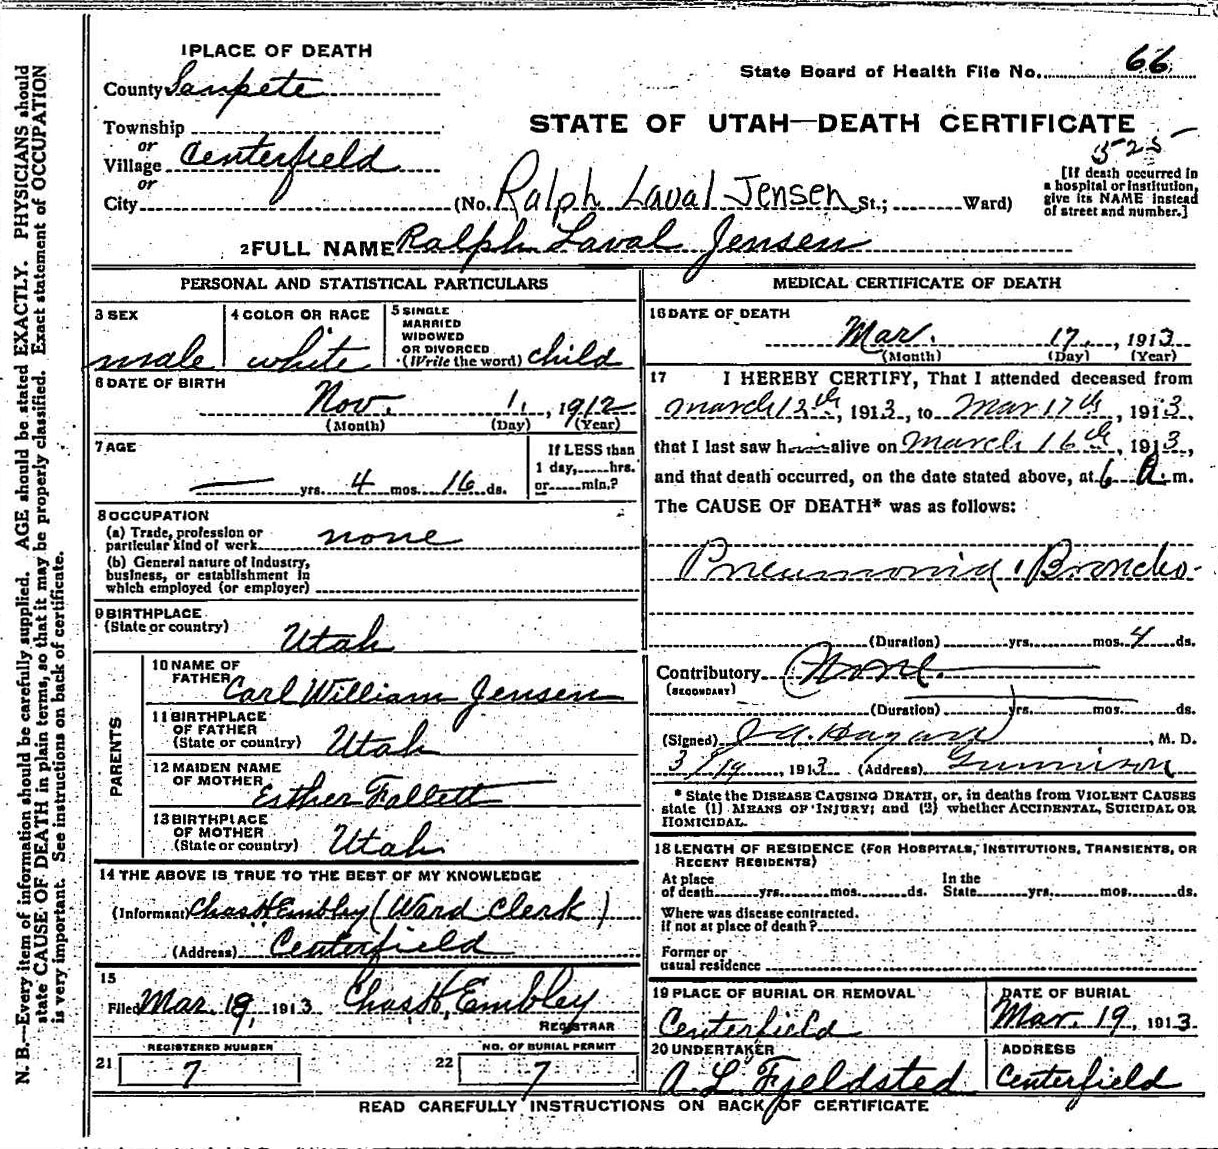 1 PLACE OF DEATH
County Sanpete
State Board of Health File No. 66
Township
or
Village Centerfield
or
City
STATE OF UTAH—DEATH CERTIFICATE
525
(No. Ralph Laval Jensen St.; Ward)
[If death occurred in
a hospital or institution,
give its NAME instead
of street and number.]
2 FULL NAME Ralph Laval Jensen
PERSONAL AND STATISTICAL PARTICULARS
3 SEX
male
4 COLOR OR RACE
white
5 SINGLE
MARRIED
WIDOWED
OR DIVORCED
(Write the word) child
6 DATE OF BIRTH
Nov. 1, 1912
(Month) (Day) (Year)
7 AGE
— yrs. 4 mos. 16 ds.
If LESS than
1 day, hrs.
or min.?
8 OCCUPATION
(a) Trade, profession or
particular kind of work none
(b) General nature of industry,
business, or establishment in
which employed (or employer)
9 BIRTHPLACE
(State or country) Utah
PARENTS
10 NAME OF
FATHER Carl William Jensen
11 BIRTHPLACE
OF FATHER
(State or country) Utah
12 MAIDEN NAME
OF MOTHER Esther Fallett
13 BIRTHPLACE
OF MOTHER
(State or country) Utah
14 THE ABOVE IS TRUE TO THE BEST OF MY KNOWLEDGE
(Informant) Chas H Embley (Ward Clerk)
(Address) Centerfield
15
Filed Mar. 19, 1913 Chas H, Embley
REGISTRAR
REGISTERED NUMBER
21 7
NO. OF BURIAL PERMIT
22 7
MEDICAL CERTIFICATE OF DEATH
16 DATE OF DEATH
Mar. 17, 1913
(Month) (Day) (Year)
17 I HEREBY CERTIFY, That I attended deceased from
march 12th, 1913, to Mar 17th, 1913,
that I last saw him alive on march 16th, 1913,
and that death occurred, on the date stated above, at 6 A. m.
The CAUSE OF DEATH* was as follows:
Pneumonia, Broncho-
(Duration) yrs. mos. 4 ds.
Contributory None.
(SECONDARY)
(Duration) yrs. mos. ds.
(Signed) J A. Hagan, M. D.
3/19, 1913 (Address) Gunnison
* State the DISEASE CAUSING DEATH, or, in deaths from VIOLENT CAUSES
state (1) MEANS OF INJURY; and (2) whether ACCIDENTAL, SUICIDAL OR
HOMICIDAL.
18 LENGTH OF RESIDENCE (FOR HOSPITALS, INSTITUTIONS, TRANSIENTS, OR
RECENT RESIDENTS)
At place
of death yrs. mos. ds.
In the
State yrs. mos. ds.
Where was disease contracted,
if not at place of death?
Former or
usual residence
19 PLACE OF BURIAL OR REMOVAL
Centerfield
DATE OF BURIAL
Mar. 19, 1913
20 UNDERTAKER
A L Fjeldsted
ADDRESS
Centerfield
READ CAREFULLY INSTRUCTIONS ON BACK OF CERTIFICATE
N. B.—Every item of information should be carefully supplied. AGE should be stated EXACTLY. PHYSICIANS should
state CAUSE OF DEATH in plain terms, so that it may be properly classified. Exact statement of OCCUPATION
is very important. See instructions on back of certificate.